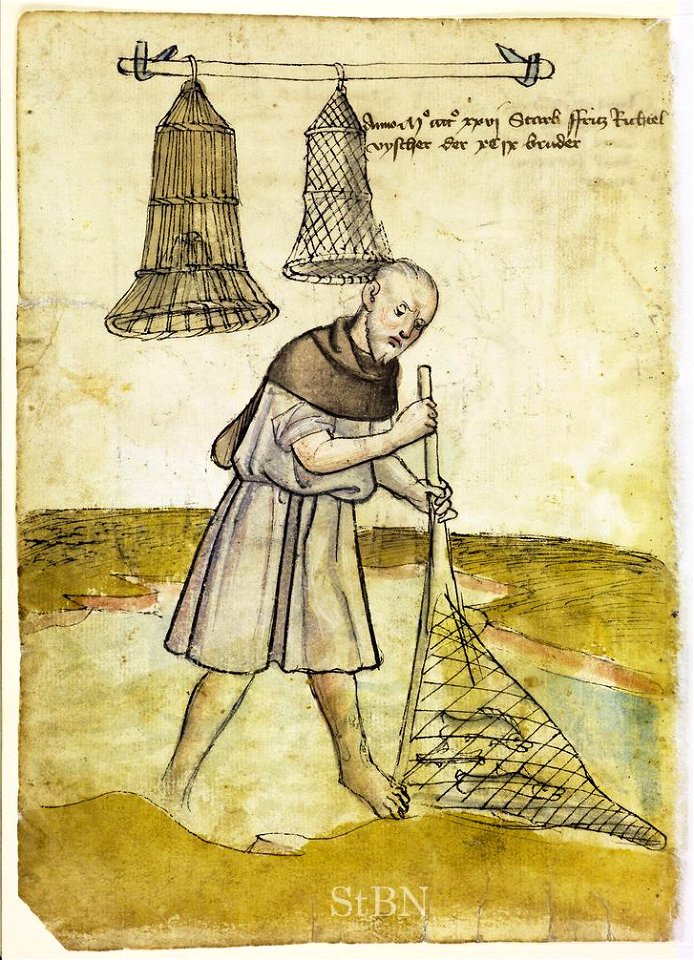 Anno M° cccc° xxvi Starb ffritz Richtel
vyscher der xCix bruder
StBN